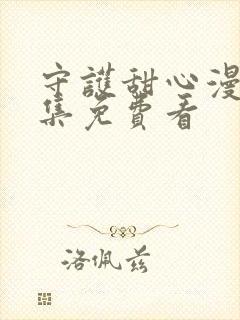 守護甜心漫
集免費看
洛佩兹